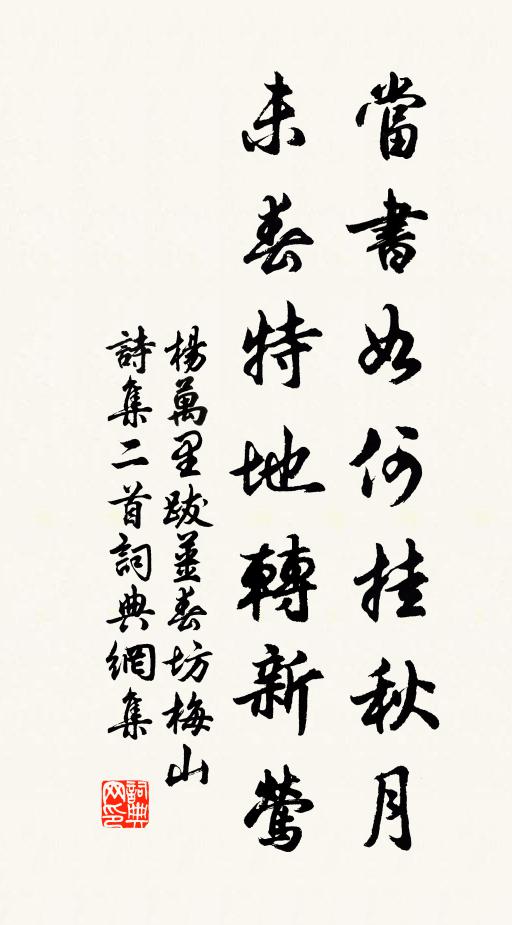 當書如何挂秋月
未春特地轉新鶯
楊萬里跋葉春坊梅山
詩集二首詞典網集
詞典
网印